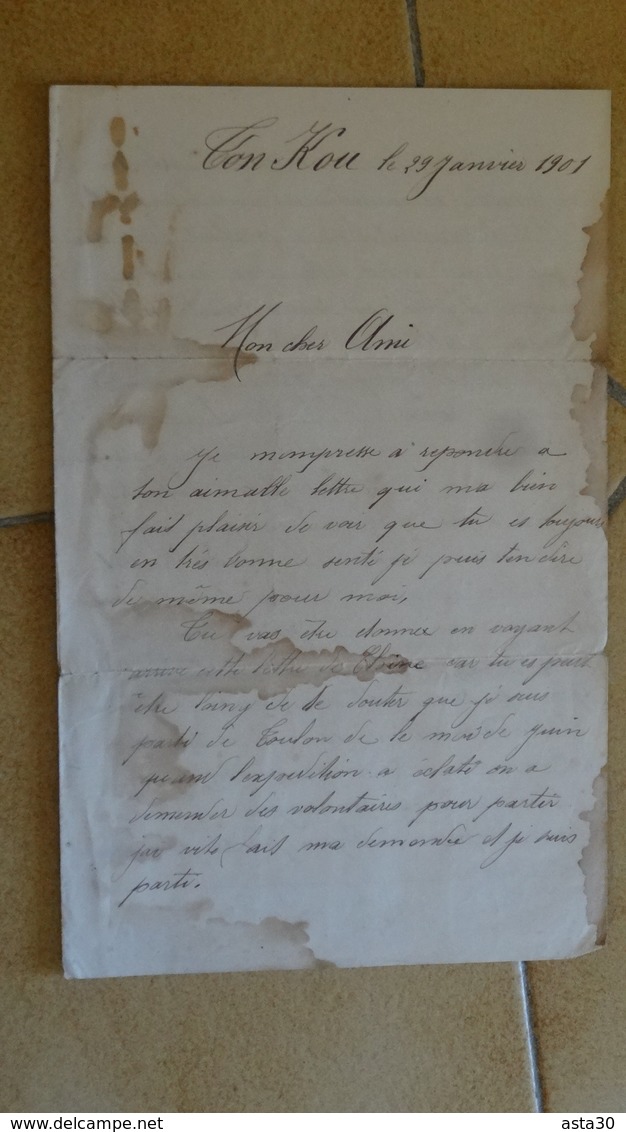 Ton Kou le 29 Janvier 1901
Mon cher Ami
Je mempresse a repondre a
ton aimable lettre qui ma bien
fait plaisir de voir que tu es toujours
en très bonne senté je puis ten dire
de même pour moi.
Tu vas être etonnee en voyant
arrive cette lettre de Chine car tu es peut
être loing de te douter que je suis
parti de Toulon de le moi de juin
quand l'expedition a éclaté on a
demender des volontaires pour partir
jai vite fait ma demende et je suis
parti.
www.delcampe.net
asta30